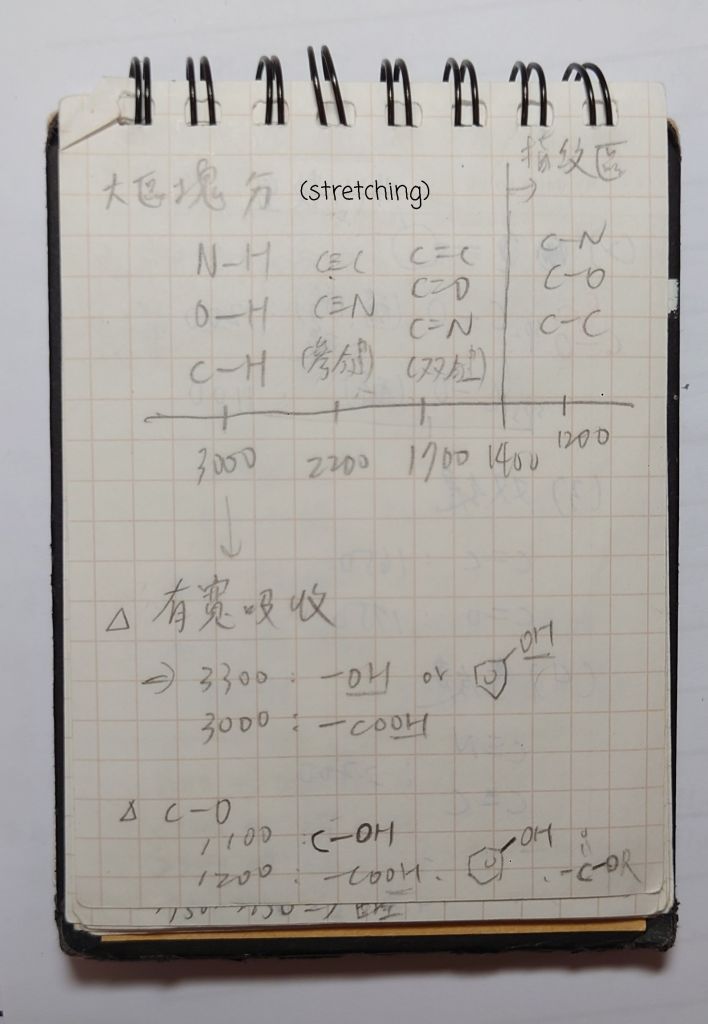 指紋區
大區塊分 (stretching) →
N-H C≡C C=C C-N
O-H C≡N C=O C-O
C-H (參鍵) C=N C-C
(双鍵)
3000 2200 1700 1400 1200
↓
△ 有寬吸收
⇒ 3300 : -OH or OH
3000 : -COOH
△ C-O
1100 : C-OH
1200 : -COOH. OH . -C-OR